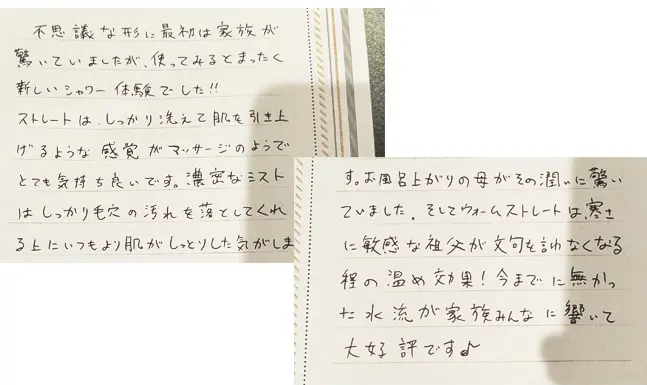 不思議な形に最初は家族が
驚いていましたが、使ってみるとまったく
新しいシャワー体験でした!!
ストレートは、しっかり洗えて肌を引き上
げるような感覚がマッサージのようで
とても気持ち良いです。濃密なミスト
はしっかり毛穴の汚れを落としてくれ
る上にいつもより肌がしっとりした気がしま
す。お風呂上がりの母がその潤いに驚い
ていました。そしてウォームストレートは、寒さ
に敏感な祖父が文句を言わなくなる
程の温め効果!今までに無かっ
た水流が家族みんなに響いて
大好評です♪